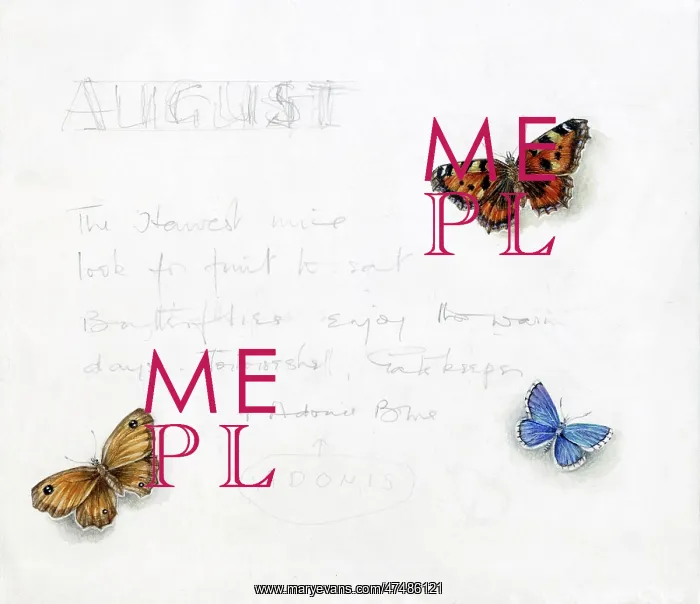 AUGUST
The Harvest mice
look for fruit to eat
Butterflies enjoy the warm
days. Tortoiseshell, Gatekeeper
Adonis Blue
ADONIS
ME
PL
ME
PL
www.maryevans.com/47486121